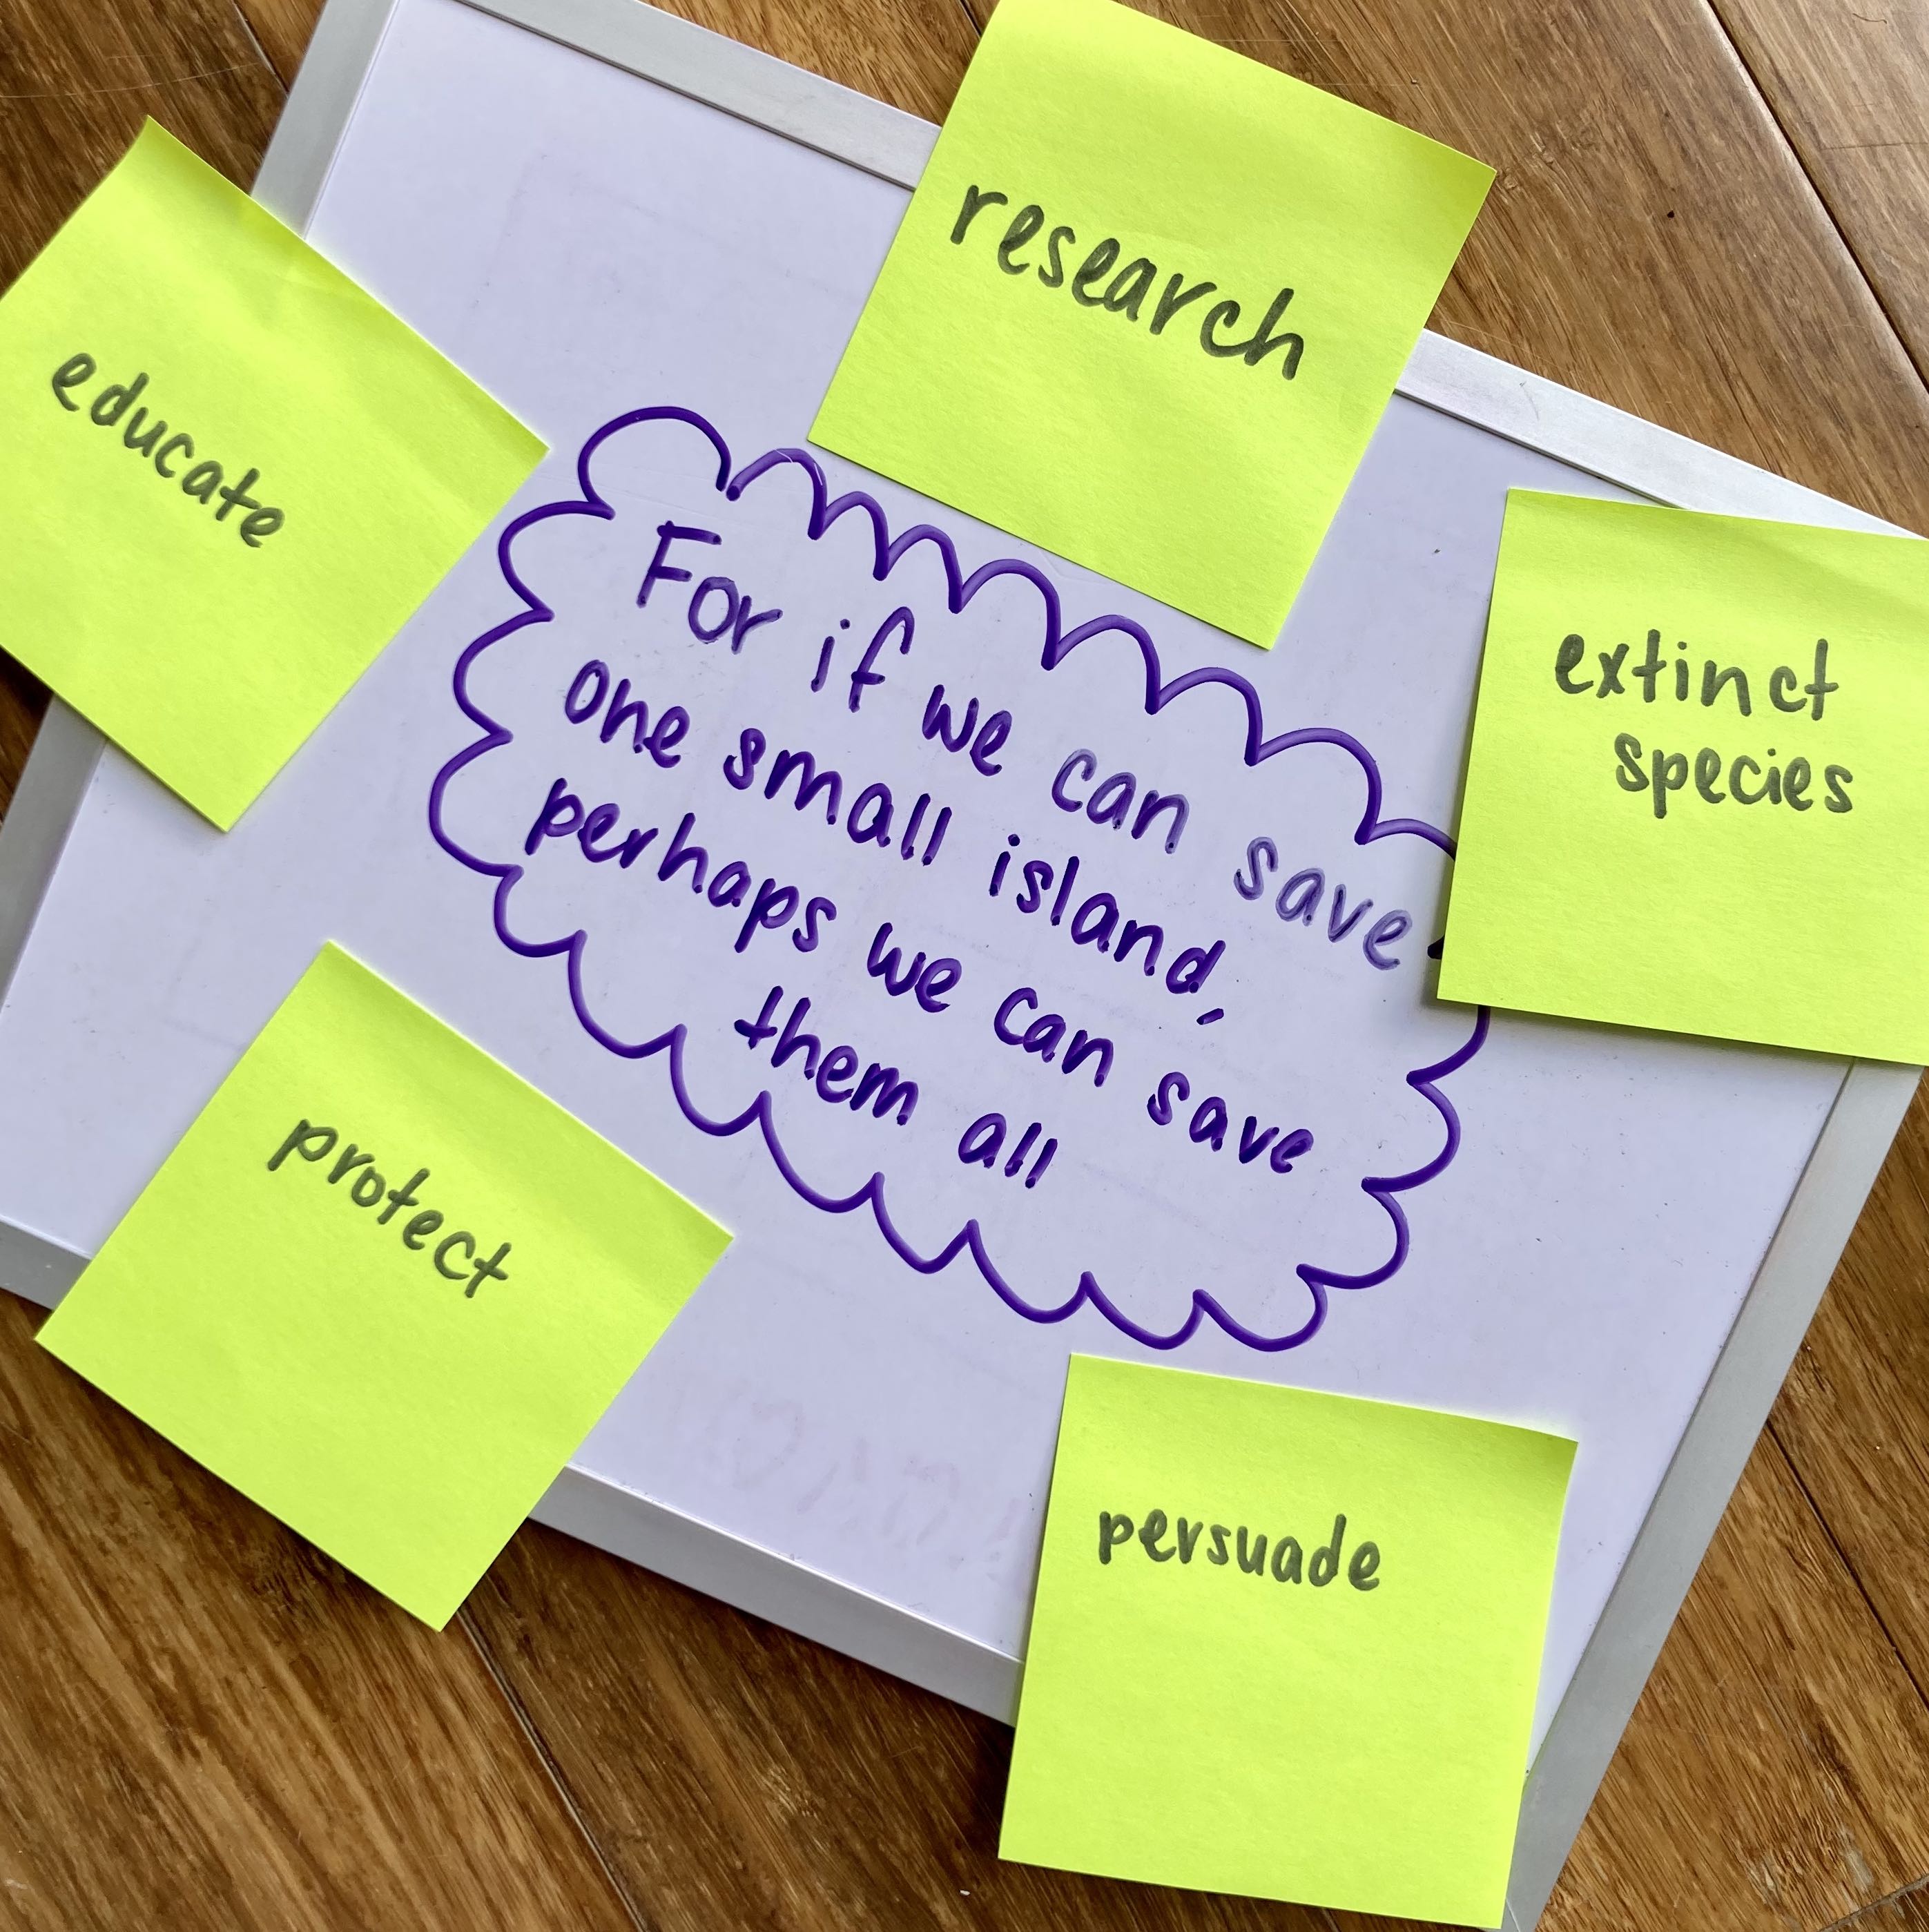 research
educate
extinct
species
For if we can save
one small island,
perhaps we can save
them all
protect
persuade